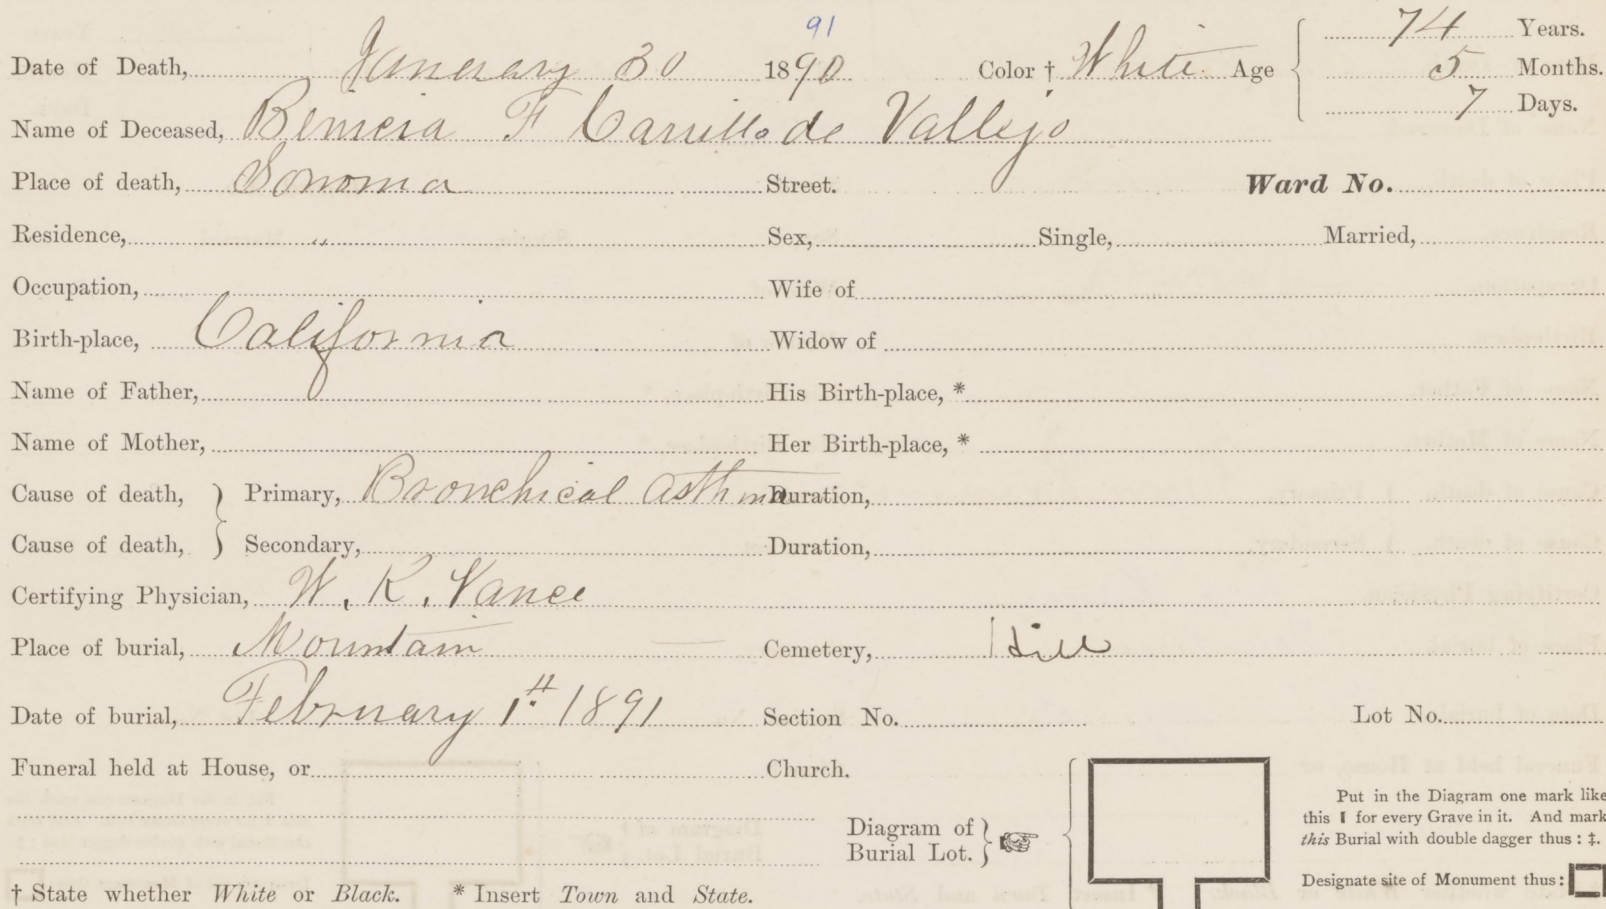 91
74 Years.
Date of Death, Januerary 30 1890 Color † White Age 5 Months.
7 Days.
Name of Deceased, Benicia F Carrillo de Vallejo
Place of death, Sonoma Street. Ward No.
Residence, " Sex, Single, Married,
Occupation, Wife of
Birth-place, California Widow of
Name of Father, His Birth-place, *
Name of Mother, Her Birth-place, *
Cause of death, } Primary, Bronchical asthma Duration,
Cause of death, } Secondary, Duration,
Certifying Physician, W. K. Vance
Place of burial, Mountain — Cemetery, Hill
Date of burial, February 1st 1891 Section No. Lot No.
Funeral held at House, or Church.
Put in the Diagram one mark like
this I for every Grave in it. And mark
this Burial with double dagger thus : ‡.
Diagram of
Burial Lot. } ☞
Designate site of Monument thus :
† State whether White or Black. * Insert Town and State.